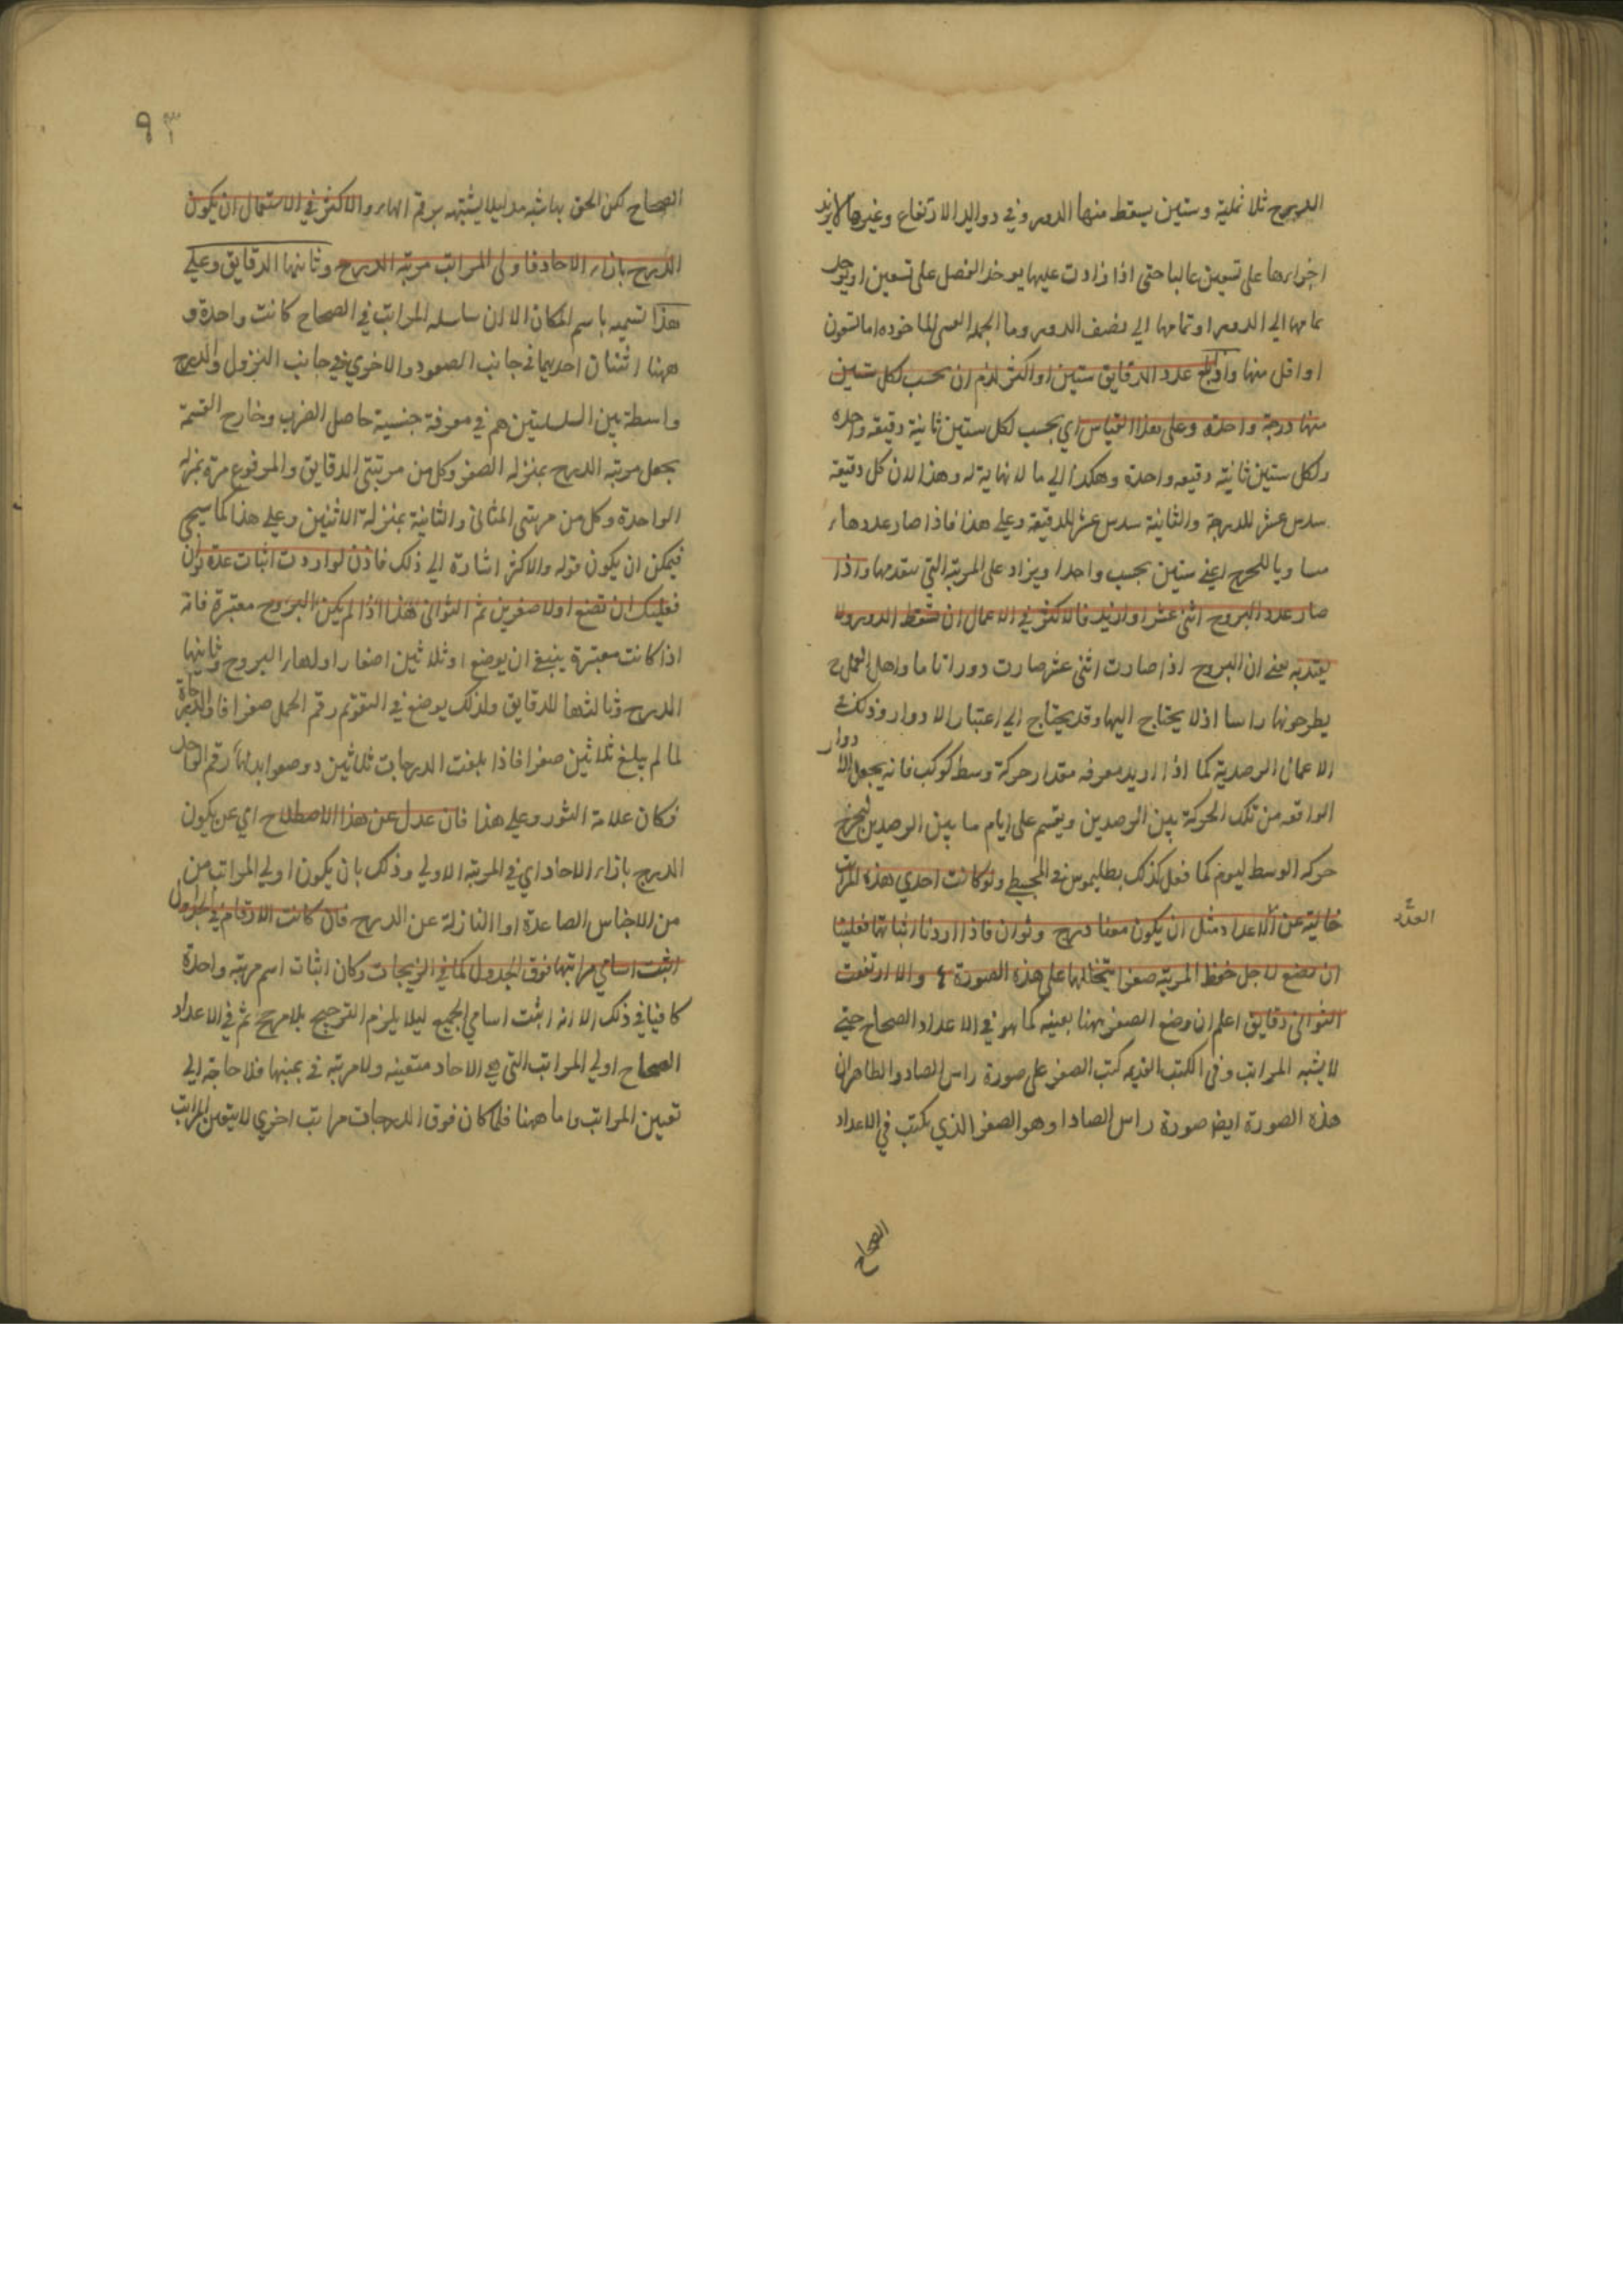 الدرج ثلاثمائة وستين يسقط منها الدور وفي دواير الارتفاع وغيرها لا يزيد
اجزاءها على تسعين غالبا حتى اذا زادت عليها يوخذ الفضل على تسعين او يوخذ
تمامها الى الدور او تمامها الى نصف الدور وما الجملة الماخوذة اما تسعون
او اقل منها واذا بلغ عدد الدقايق ستين او اكثر لزم ان يحسب لكل ستين
منها درجة واحدة وعلى هذا القياس اي يحسب لكل ستين ثانية دقيقه واحده
ولكل ستين ثانية دقيقه واحدة وهكذا الي ما لا نهاية له وهذا لان كل دقيقة
سدس عشر للدرجة والثانية سدس عشر للدقيقة وعلي هذا فاذا صار عددها
مساويا للمخرج اعني ستين يحسب واحدا ويزاد على المرتبة التي تتقدمها واذا
صار عدد البروج اثنى عشر او ازيد فالاكثر في الاعمال ان يسقط الدور ولا
يعتد به يعني ان البروج اذا صارت اثنى عشر صارت دورا تاما واهل العمل
يطرحونها راسا اذ لا يحتاج اليها وقد يحتاج الي اعتبار الادوار وذلك في
الاعمال الرصدية كما اذا اريد معرفه مقدار حركة وسط كوكب فانه يجعل الادوار
الواقعه من تلك الحركة بين الرصدين ويقسم على ايام ما بين الرصدين ليخرج
حركه الوسط ليوم كما فعل كذلك بطليموس في المجسطي ولو كانت احدي هذه المراتب
خالية عن الاعداد مثل ان يكون معنا درج وثوان فاذا اردنا اثباتها فعلينا
العدد
ان نضع لاجل حفظ المرتبة صفرا يتخللها على هذه الصورة ٤ والا ارتفعت
الثواني دقايق اعلم ان وضع الصفر ههنا بعينه كما هو في الاعداد الصحاح حتي
لا يشبه المراتب وفي الكتب القديمه كتب الصفر على صورة راس الصاد والظاهر ان
هذه الصورة ايضا صورة راس الصاد او هو الصفر الذي يكتب في الاعداد
الصحاح
٩٣
الصحاح لكن الحق بها شيء ليلا يشتبه برقم الهاء والاكثر في الاستعمال ان يكون
الدرج بازاء الاحاد فاولى المراتب مرتبة الدرج وثانيها الدقايق وعلي
هذا تسميه باسم المكان الا ان سلسله المراتب في الصحاح كانت واحدة و
ههنا اثنتان احديهما في جانب الصعود والاخري في جانب النزول والدرج
واسطة بين السلسلتين هم في معرفة جنسية حاصل الضرب وخارج القسمة
يجعل مرتبه الدرج بمنزله الصفر وكل من مرتبتي الدقايق والمرفوع مرة بمنزلة
الواحدة وكل من مرتبتى المثاني والثانية بمنزلة الاثنين وعلي هذا كما سيجي
فيمكن ان يكون قوله والاكثر اشارة الي ذلك فاذن لو اردت اثبات عدة ثوان
فعليك ان تضع اولا صفرين ثم الثواني هذا اذا لم يكن البروج معتبرة فانه
اذا كانت معتبرة ينبغي ان يوضع او ثلاثين اصفارا ولها البروج وثانيها
الدرج وثالثها للدقايق ولذلك يوضع في التقويم رقم الحمل صفرا فان الدرجة
لما لم يبلغ ثلاثين صفرا فاذا بلغت الدرجات ثلاثين وضعوا بدلها رقم الواحد
فكان علامة الثور وعلي هذا فان عدل عن هذا الاصطلاح اي عن يكون
الدرج بازاء الاحاد اي في المرتبة الاولي وذلك بان يكون اولي المراتب من
من الاجناس الصاعدة او النازلة عن الدرج فان كانت الارقام في جدول
اثبت اسامي مراتبها فوق الجدول كما في الزيجات وكان اثبات اسم مرتبه واحدة
كافيا في ذلك الا انه اثبت اسامي الجميع ليلا يلزم الترجيح بلا مرجح ثم في الاعداد
الصحاح اولي المراتب التي هي الاحاد متعينه ولا مرتبة في يمينها فلا حاجة الي
تعيين المراتب واما ههنا فلما كان فوق الدرجات مراتب اخري لا يتعين المراتب